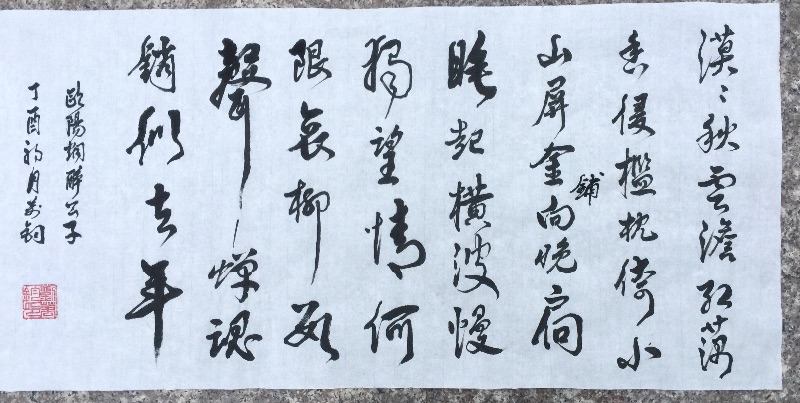 漠〻秋雲澹紅藕
香侵檻枕倚小
山屏金鋪向晚扃
睡起橫波慢
獨望情何
限哀柳數
聲蟬魂
銷似去年
歐陽炯醉公子
丁酉初月